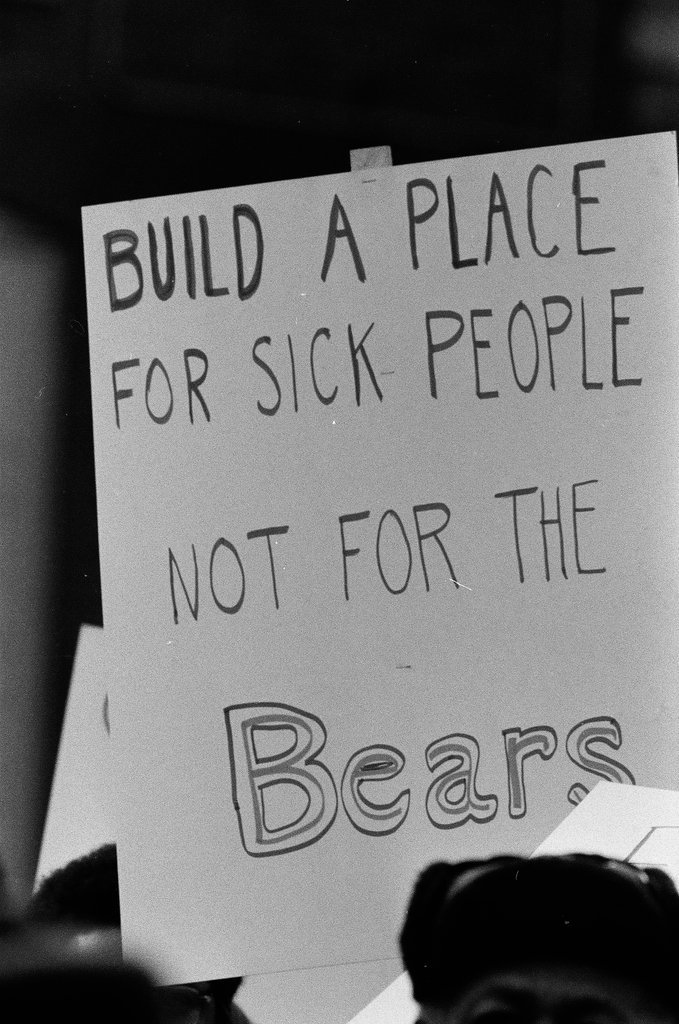 BUILD A PLACE
FOR SICK PEOPLE
NOT FOR THE
Bears